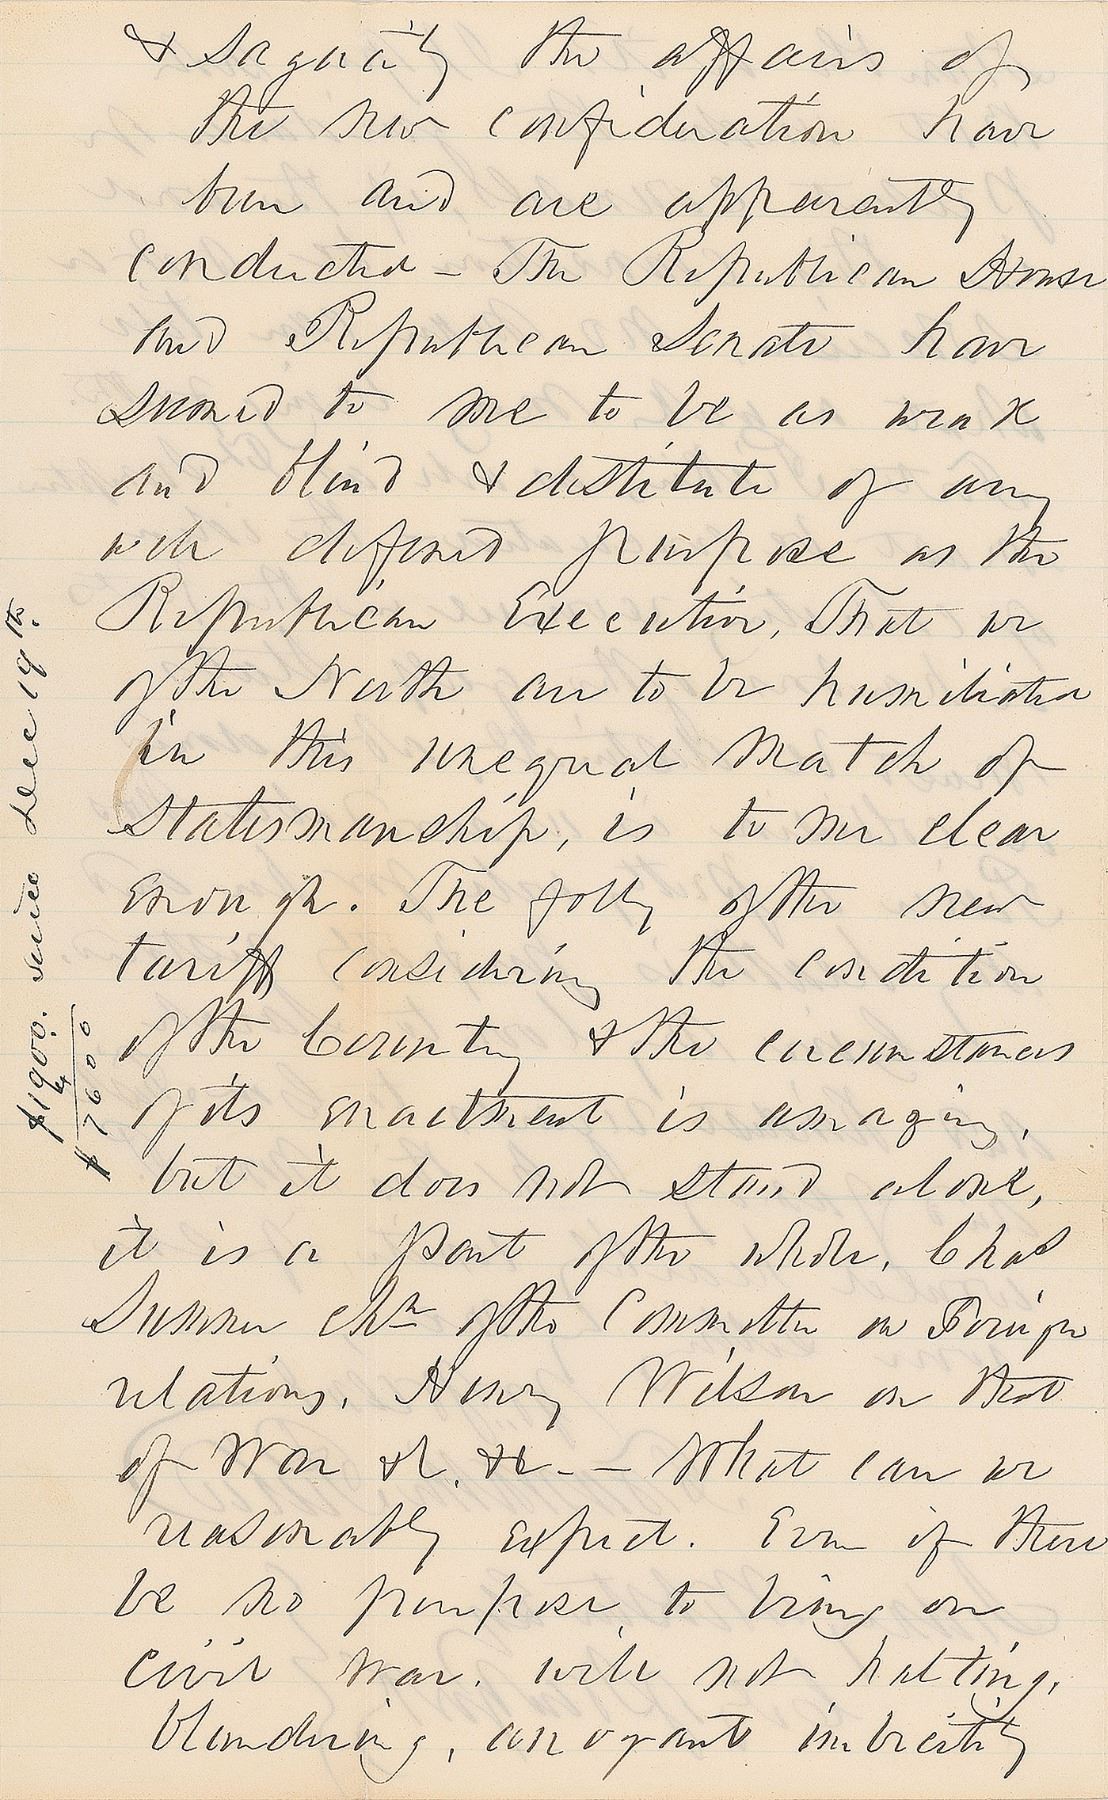 & sagacity the affairs of
the new confederation have
been and are apparently
conducted – The Republican House
and Republican Senate have
seemed to me to be as weak
and blind & destitute of any
well defined purpose as the
Republican Executive, That we
of the North are to be humiliated
in this unequal match of
Statesmanship, is to me clear
enough. The folly of the new
tariff considering the condition
of the Country & the circumstances
of its enactment is amazing,
but it does not stand alone,
it is a part of the whole. Chas
Sumner chn of the Committee on Foreign
relations. Henry Wilson on that
of War &c. &c. – – What can we
reasonably expect. Even if there
be no purpose to bring on
civil war. will not halting,
blundering, arrogant imbecility
$1900. since Dec 19th.
4
$7600